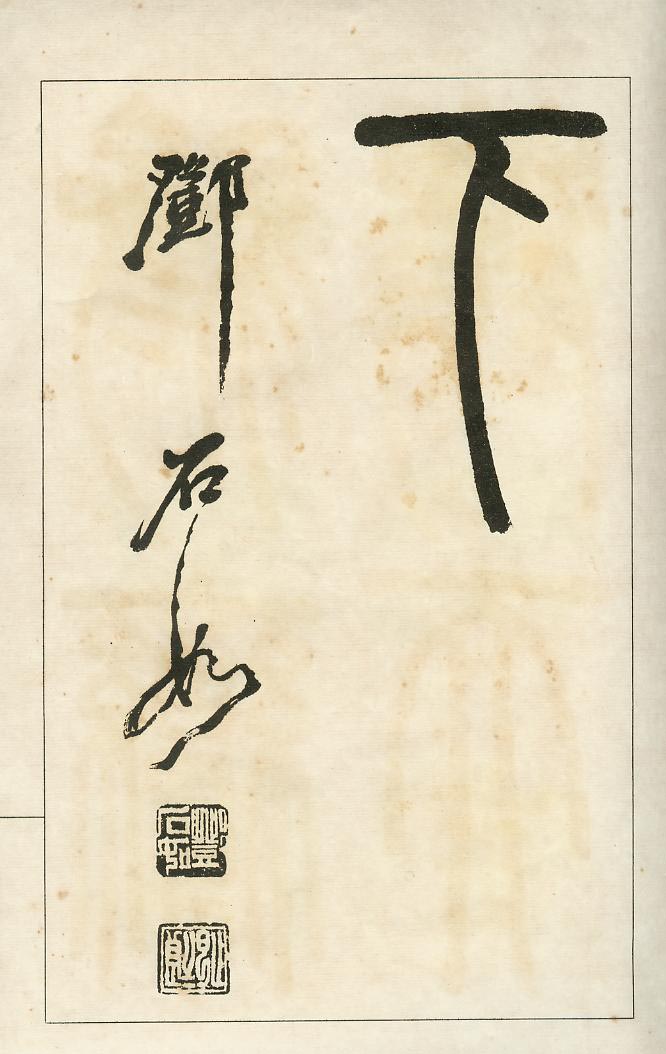 下
鄧石如
鄧石如